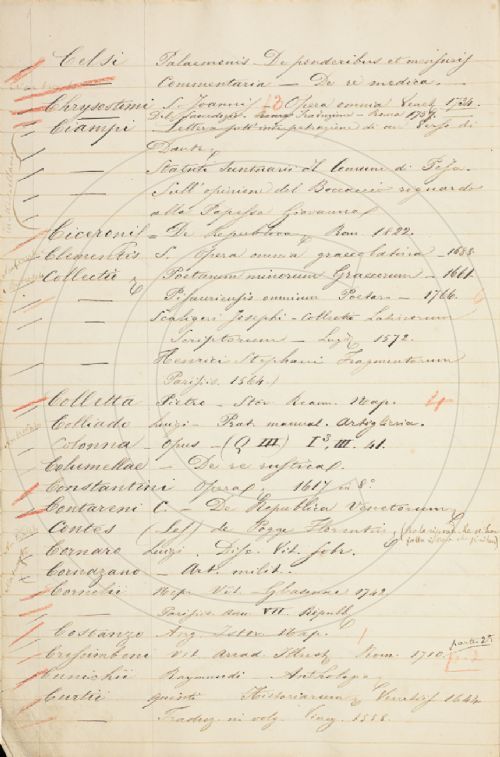 Celsi Palaemonis De ponderibus et mensuris
Commentaria — De re medica.
Chrysostomi S. Joannis Opera omnia Venet. 1734.
Del Sacerdozio Traduzione — Roma 1757.
Ciampi Lettera sull' interpretazione di un verso di
Dante
— Statuti Suntuari del Comune di
— Sull' opinione del Boccaccio riguardo
alla Papessa Giovanna
Ciceronis — De Republica Rom. 1822.
Clementis S. Opera omnia graeco latina
Collectio Poetarum minorum Graecorum — 1611.
— Pisauriensis omnium Poetar. — 1766.
— Scaligeri Josephi — Collecta Latinorum
Scriptorum — Lugd. 1572.
— Henrici Stephani Fragmentorum
Parisis. 1564.
Colletta Pietro — Stor. Ream. Nap.
Colliado Luigi — Prat. manual. Artiglieria.
Colonna — Opus — (Q III) I 3, III. 41.
Columellae — De re rustica.
Constantini Opera. 1617 in 8°
Contareni C. — De Republica Venetorum
Contes (Les) de Pogge Florentin
Cornaro Luigi. Disc. Vit. sobr.
Cornazano — Art. milit.
Cornelii Nep. Vit. — 1742
— Parisis Ann. VII. Républ.
Costanzo Ang. Istor. Nap.
parte 2a
Crescimbeni Vit. Arcad. Illust. Rom. 1710.
Cunichii Raymundi — Anthologia
Curtii Quinti Historiarum 1644
— Traduz. in volg. Ving. 1558.